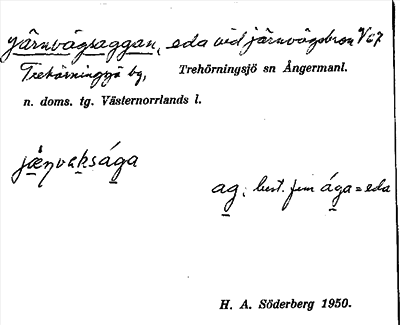 järnvägsaggan, eda vid järnvägsbron V 67
Trehörningsjö by, Trehörningsjö sn Ångermanl.
n. doms. tg. Västernorrlands l.
jæ̀ṇvaksága
ag, best. fem ága = eda
H. A. Söderberg 1950.